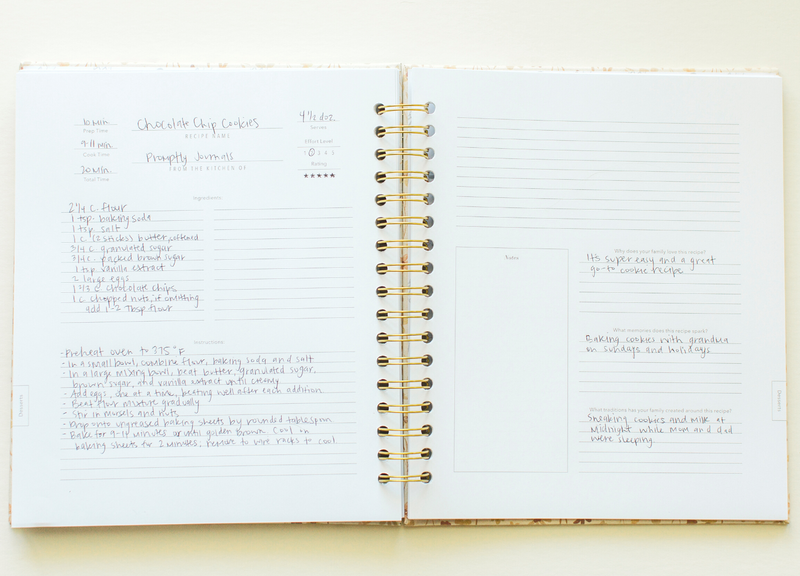 10 min.
Prep Time
Chocolate Chip Cookies
RECIPE NAME
4 1/2 doz.
Serves
9-11 min
Cook Time
Effort Level
1 2 3 4 5
Promptly Journals
FROM THE KITCHEN OF
20 min.
Total Time
Rating
★★★★★
Ingredients:
2 1/4 c. flour
1 tsp. baking soda
1 tsp. salt
1 c. (2 sticks) butter, softened
3/4 c. granulated sugar
3/4 c. packed brown sugar
1 tsp vanilla extract
2 large eggs
1 2/3 c. chocolate chips
1 c. chopped nuts, if omitting
add 1-2 Tbsp flour
Instructions:
- Preheat oven to 375°F
- In a small bowl, combine flour, baking soda and salt
- In a large mixing bowl, beat butter, granulated sugar,
brown sugar, and vanilla extract until creamy
- Add eggs, one at a time, beating well after each addition
- Beat flour mixture gradually
- Stir in morsels and nuts.
- Drop onto ungreased baking sheets by rounded tablespoon
- Bake for 9-11 minutes or until golden brown. Cool on
baking sheets for 2 minutes, remove to wire racks to cool.
Desserts
Notes
Why does your family love this recipe?
It's super easy and a great
go-to cookie recipe
What memories does this recipe spark?
Baking cookies with grandma
on Sundays and holidays
What traditions has your family created around this recipe?
Sneaking cookies and milk at
midnight while mom and dad
were sleeping.
Desserts